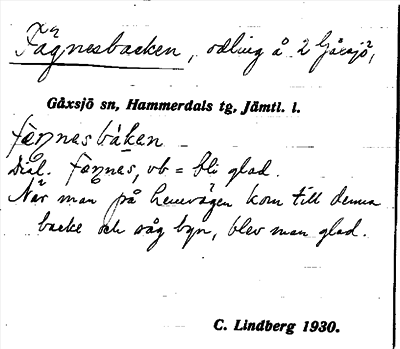 Fägnesbacken, odling å 2 Gåxsjö,
Gåxsjö sn, Hammerdals tg, Jämtl. l.
fæŋnesbáken
Dial. fæŋnes, vb = bli glad.
När man på hemvägen kom till denna
backe och såg byn, blev man glad.
C. Lindberg 1930.